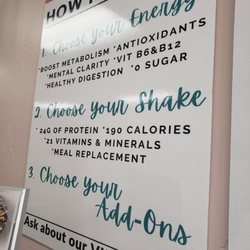 HOW
1. Choose your Energy
*BOOST METABOLISM *ANTIOXIDANTS
*MENTAL CLARITY *VIT B6&B12
*HEALTHY DIGESTION *0 SUGAR
2. Choose your Shake
*24G OF PROTEIN *190 CALORIES
*21 VITAMINS & MINERALS
*MEAL REPLACEMENT
3. Choose your
Add-Ons
Ask about our